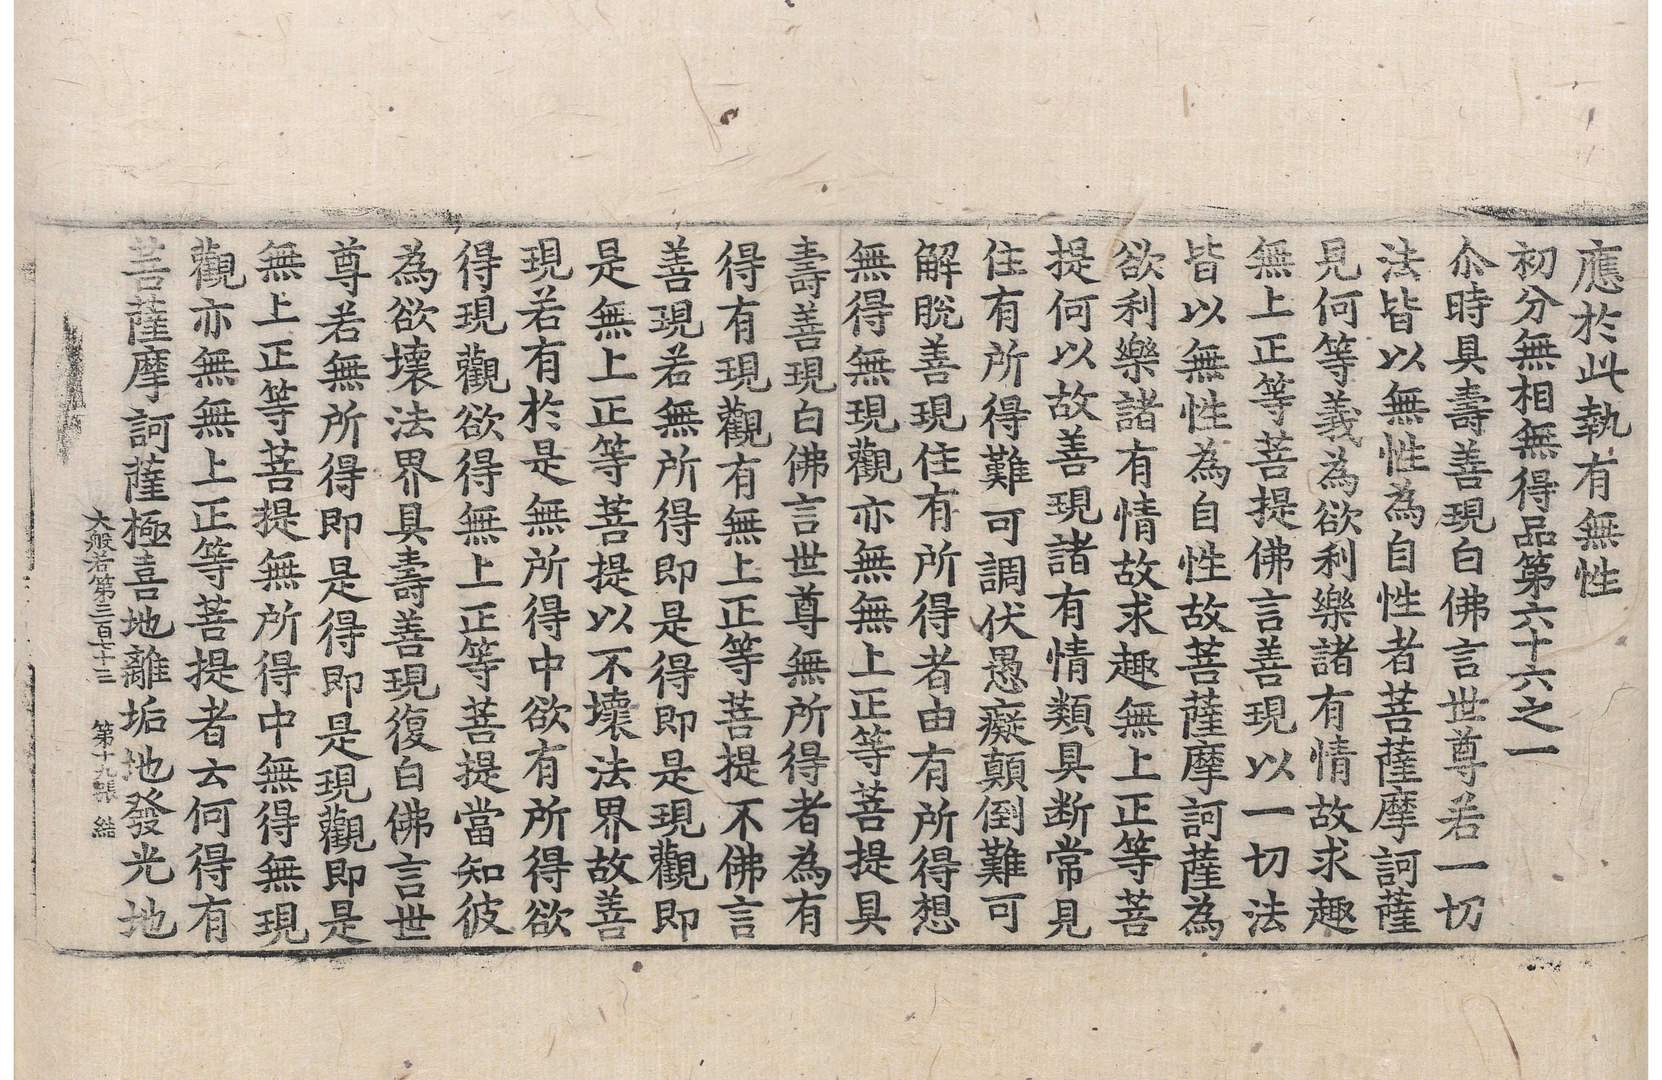 應於此執有無性
初分無相無得品第六十六之一
尒時具壽善現白佛言世尊若一切
法皆以無性為自性者菩薩摩訶薩
見何等義為欲利樂諸有情故求趣
無上正等菩提佛言善現以一切法
皆以無性為自性故菩薩摩訶薩為
欲利樂諸有情故求趣無上正等菩
提何以故善現諸有情類具断常見
住有所得難可調伏愚癡顛倒難可
解脫善現住有所得者由有所得想
無得無現觀亦無無上正等菩提具
壽善現白佛言世尊無所得者為有
得有現觀有無上正等菩提不佛言
善現若無所得即是得即是現觀即
是無上正等菩提以不壞法界故善
現若有於是無所得中欲有所得欲
得現觀欲得無上正等菩提當知彼
為欲壞法界具壽善現復白佛言世
尊若無所得即是得即是現觀即是
無上正等菩提無所得中無得無現
觀亦無無上正等菩提者云何得有
菩薩摩訶薩極喜地離垢地發光地
大般若第三百七十三 第十九張 結